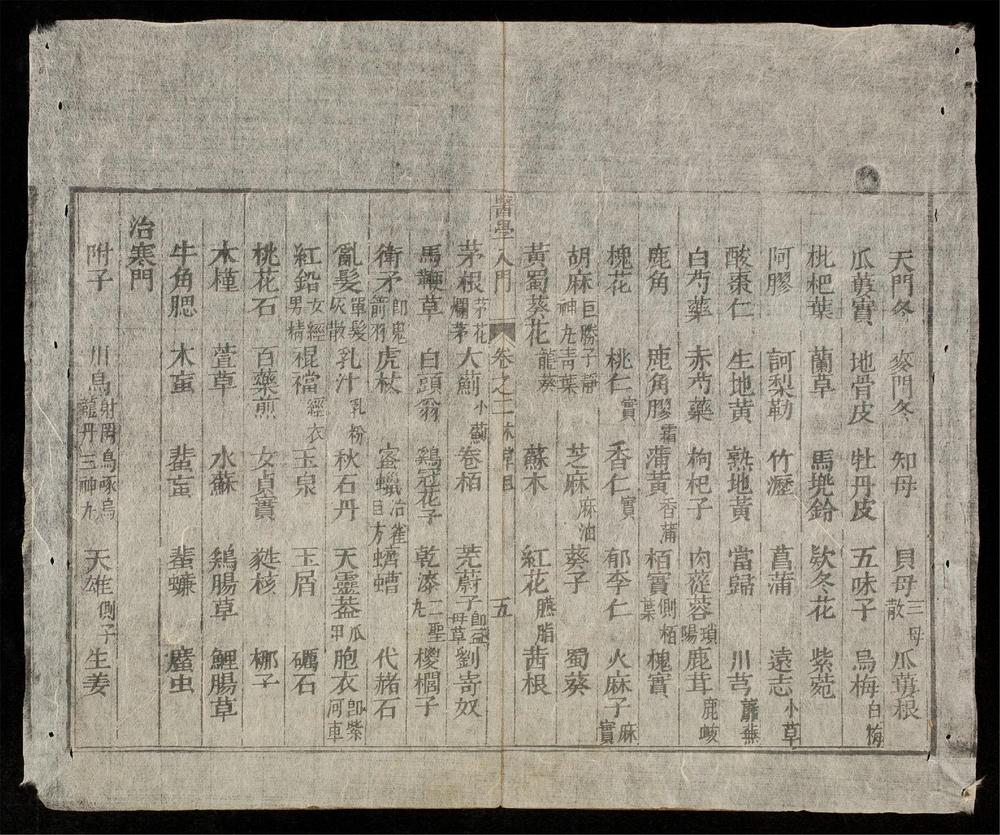 天門冬 麥門冬 知母 貝母 三母散 瓜蔞根
瓜蔞實 地骨皮 牡丹皮 五味子 烏梅 白梅
枇杷葉 蘭草 馬兜鈴 欵冬花 紫菀
阿膠 訶梨勒 竹瀝 菖蒲 遠志 小草
酸棗仁 生地黃 熟地黃 當歸 川芎 蘼蕪
白芍藥 赤芍藥 枸杞子 肉蓯蓉 瑣陽 鹿茸 鹿峻
鹿角 鹿角膠 霜 蒲黃 香蒲 栢實 側栢葉 槐實
槐花 桃仁 實 杏仁 實 郁李仁 火麻子 麻實
胡麻 巨勝子靜神丸青葉 芝麻 麻油 葵子 蜀葵
黃蜀葵花 龍葵 蘇木 紅花 臙脂 茜根
醫學入門 卷之二 本草目 五
茅根 茅花爛茅 大薊 小薊 卷栢 茺蔚子 卽益母草 劉寄奴
馬鞭草 白頭翁 鷄冠花子 乾漆 二聖丸 椶櫚子
衛矛 卽鬼箭羽 虎杖 蜜蠟 治雀目方 蠐螬 代赭石
亂髮 單髮灰散 乳汁 乳粉 秋石丹 天靈蓋 爪甲 胞衣 卽紫河車
紅鉛 女經男精 裩襠 經衣 玉泉 玉屑 礪石
桃花石 百藥煎 女貞實 蕤核 梛子
木槿 萱草 水蘇 鷄腸草 鯉腸草
牛角腮 木䖟 蜚䖟 蜚蠊 䗪虫
治寒門
附子 川烏 射罔烏喙烏龍丹三神丸 天雄 側子 生姜